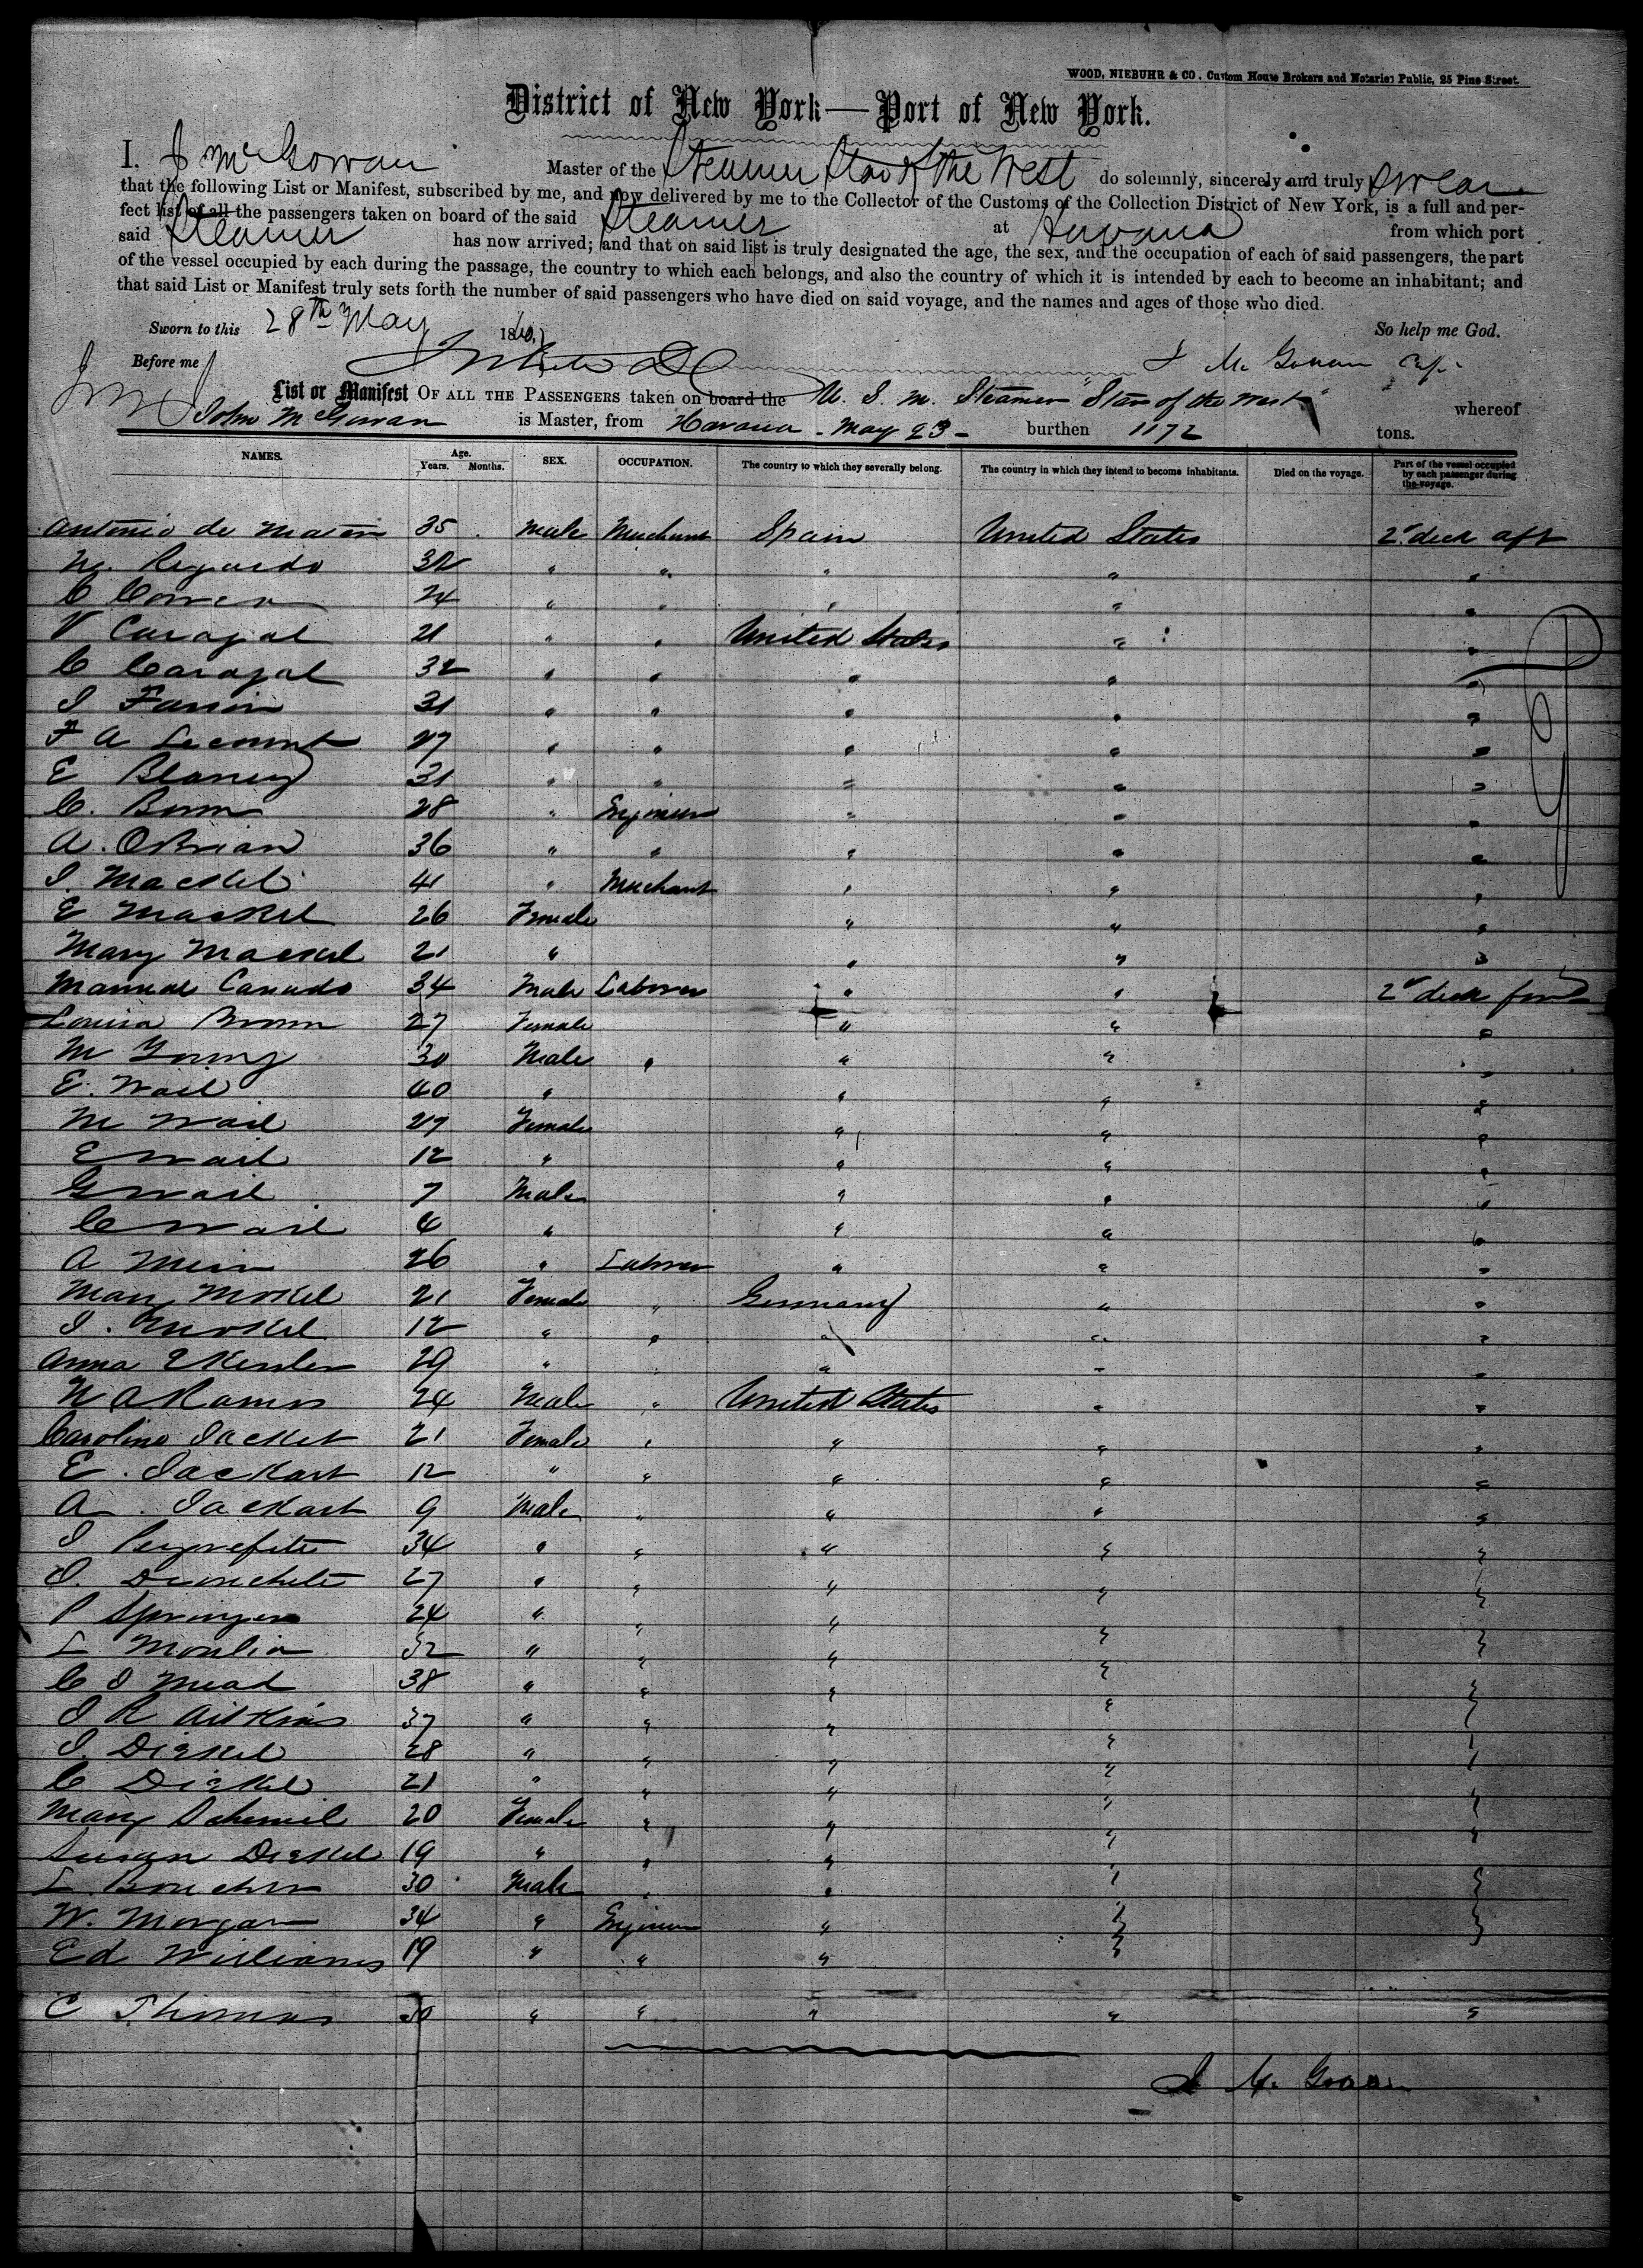 WOOD, NIEBUHR & CO., Custom House Brokers and Notaries Public, 25 Pine Street.
District of New York—Port of New York.
I, J McGowan Master of the Steamer Star of the West do solemnly, sincerely and truly swear
that the following List or Manifest, subscribed by me, and now delivered by me to the Collector of the Customs of the Collection District of New York, is a full and per-
fect list of all the passengers taken on board of the said Steamer at Havana from which port
said Steamer has now arrived; and that on said list is truly designated the age, the sex, and the occupation of each of said passengers, the part
of the vessel occupied by each during the passage, the country to which each belongs, and also the country of which it is intended by each to become an inhabitant; and
that said List or Manifest truly sets forth the number of said passengers who have died on said voyage, and the names and ages of those who died.
Sworn to this 28th May 1860, So help me God.
Before me J McGowan Capt
List or Manifest OF ALL THE PASSENGERS taken on board the U. S. M. Steamer "Star of the West" whereof
John McGowan is Master, from Havana - May 23 - burthen 1172 tons.
NAMES. Age. Years. Months. SEX. OCCUPATION. The country to which they severally belong. The country in which they intend to become inhabitants. Died on the voyage. Part of the vessel occupied by each passenger during the voyage.
Antonio de 35 Male Merchant Spain United States 2d deck aft
32 " " " " "
C 24 " " " " "
V Caragal 21 " " United States " "
C Caragal 32 " " " " "
31 " " " " "
F A Lecount 27 " " " " "
E Blaney 31 " " " " "
C. 28 " Engineer " " "
A. OBrian 36 " " " " "
J. Mackel 41 " Merchant " " "
E Mackel 26 Female " " "
Mary Mackel 21 " " " "
Manuel Canudo 34 Male Laborer " " 2d deck ford
Louisa Brown 27 Female " " "
M Young 30 Male " " " "
E. Wail 40 " " " "
M Wail 27 Female " " "
E Wail 12 " " " "
G Wail 7 Male " " "
C Wail 6 " " " "
A 26 " Laborer " " "
Mary Mokel 21 Female " Germany " "
J. 12 " " " " "
Anna 29 " " " " "
N A Ramos 24 Male " United States " "
Caroline Jacket 21 Female " " " "
E. Jackart 12 " " " " "
A. Jackart 9 Male " " " "
J 34 " " " " "
J. 27 " " " " "
P Springer 24 " " " " "
L Moulin 32 " " " " "
C J Mead 38 " " " " "
J R Aitkins 37 " " " " "
J. Diekel 28 " " " " "
C Diekel 21 " " " " "
Mary 20 Female " " " "
Susan Diekel 19 " " " " "
L. Boucher 30 Male " " " "
W. Morgan 34 " Engineer " " "
Ed Williams 19 " " " "
C Thomas 30 " " " " "
J McGowan